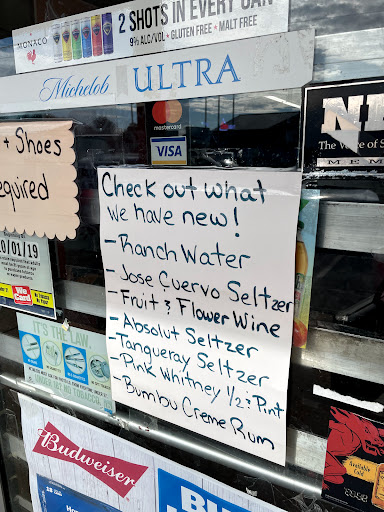 MONACO
2 SHOTS IN EVERY CAN
9% ALC/VOL • GLUTEN FREE • MALT FREE
Michelob ULTRA
mastercard
VISA
+ Shoes
equired
Check out what
we have new!
- Ranch Water
- Jose Cuervo Seltzer
- Fruit & Flower Wine
- Absolut Seltzer
- Tanqueray Seltzer
- Pink Whitney 1/2 & Pint
- Bumbu Creme Rum
The Voice of S
MEM
0/01/19
We Card
IT'S THE LAW.
UNDER 21 NO TOBACCO
Budweiser
Available
Cold